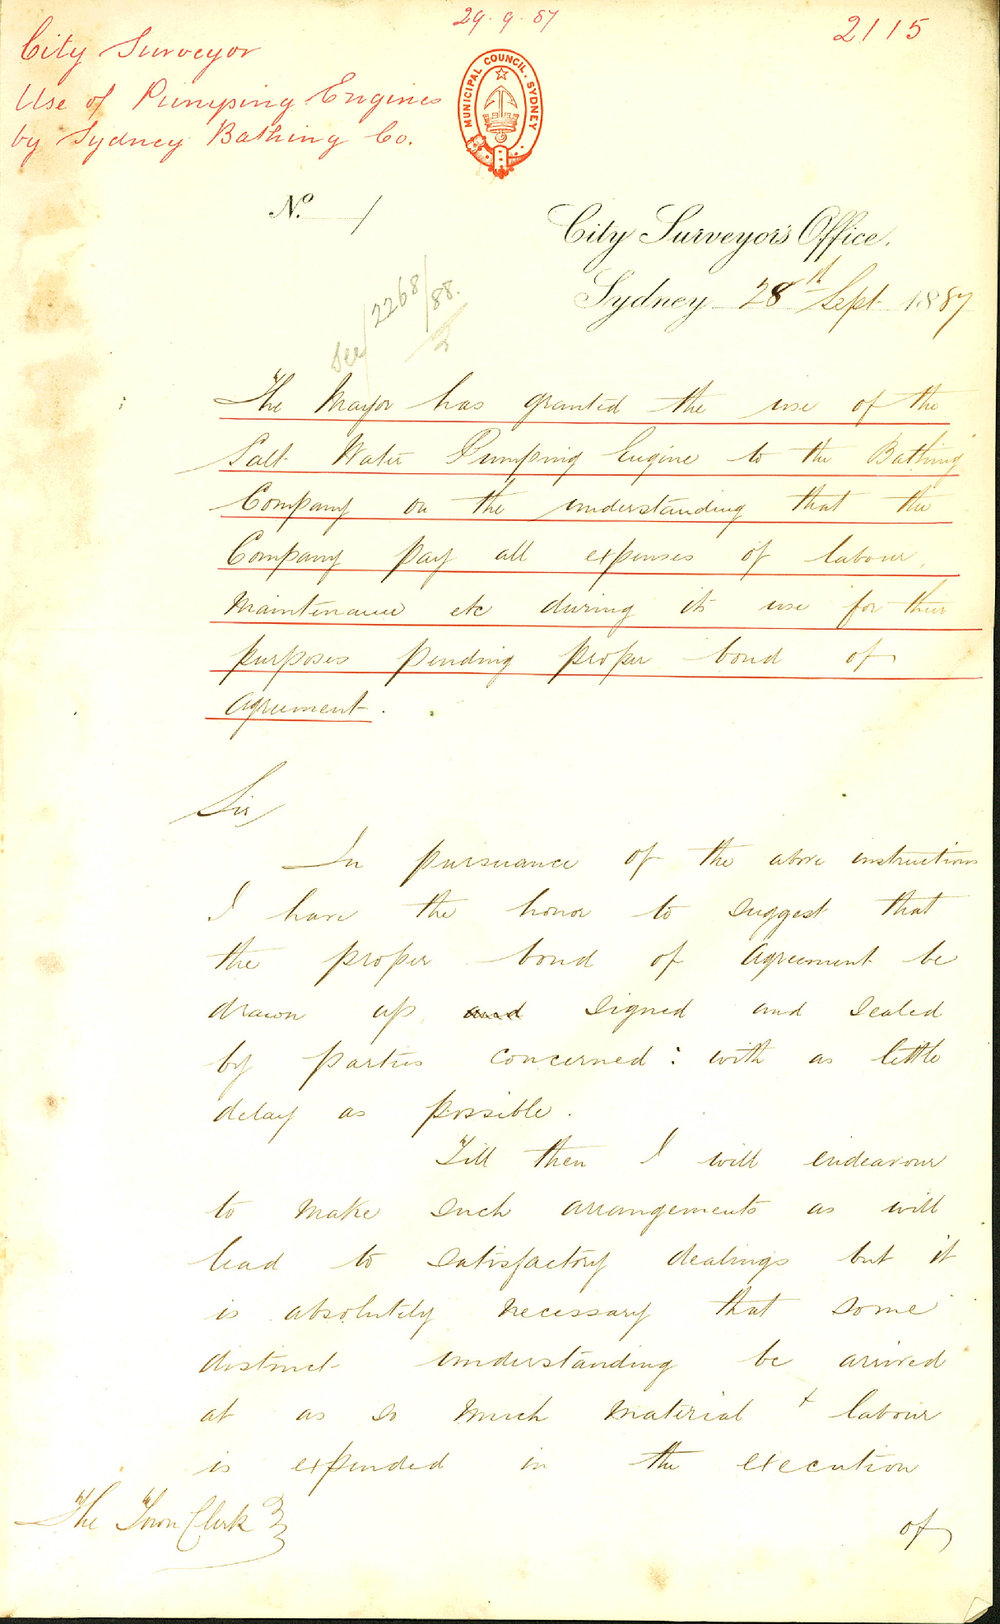 29.9.87
2115
City Surveyor
Use of Pumping Engines
by Sydney Bathing Co.
MUNICIPAL COUNCIL. SYDNEY
No. 1
City Surveyor's Office.
Sydney 28st Sept 1887
see 2268/88.
The Mayor has granted the use of the
Salt Water Pumping Engine to the Bathing
Company on the understanding that the
Company pay all expenses of labour,
Maintenance etc during its use for their
purposes pending proper bond of
agreement.
Sir
In pursuance of the above instructions
I have the honor to suggest that
the proper bond of agreement be
drawn up and signed and sealed
by parties concerned: with as little
delay as possible.
Till then I will endeavour
to make such arrangements as will
lead to satisfactory dealings but it
is absolutely necessary that some
distinct understanding be arrived
at as so much material + labour
is expended in the execution
The Town Clerk
of